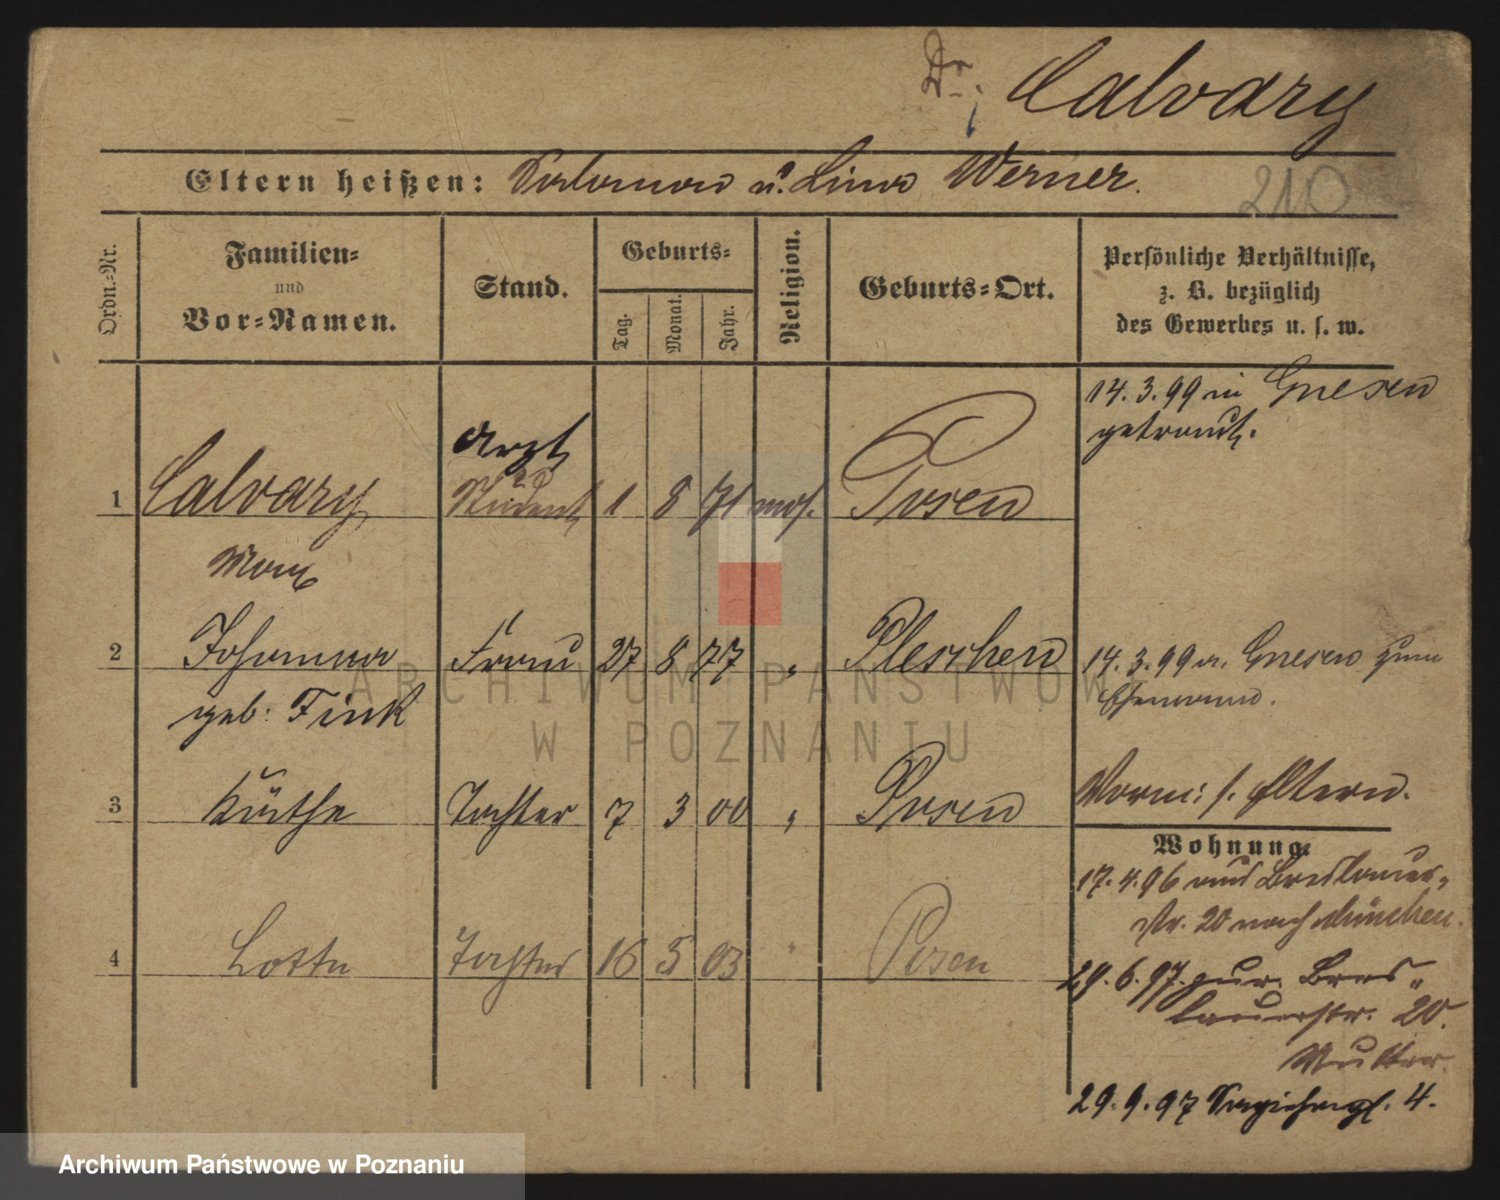 Dr. Calvary
Eltern heißen: Salomon u. Lina Werner.
210
Ordn.-Nr.
Familien-
und
Vor-Namen.
Stand.
Geburts-
Tag.
Monat.
Jahr.
Religion.
Geburts-Ort.
Persönliche Verhältnisse,
z. B. bezüglich
des Gewerbes u. s. w.
14.3.99 in Gnesen
getraut.
Arzt
1 Calvary Student 1 8 71 mos. Posen
Max
2 Johanna Frau 27 8 77 " Pleschen
geb: Fink
14.3.99 v. Gnesen zum
Ehemann.
3 Käthe Tochter 7 3 00 " Posen
Vorm: s. Eltern.
Wohnung.
17.4.96 aus Breslauer-
Str. 20 nach München.
4 Lotte Tochter 16 5 03 " Posen
29.6.97 zur. Bres-
lauerstr. 20.
Mutter.
29.9.97 4.
ARCHIWUM PAŃSTWOWE
W POZNANIU
Archiwum Państwowe w Poznaniu